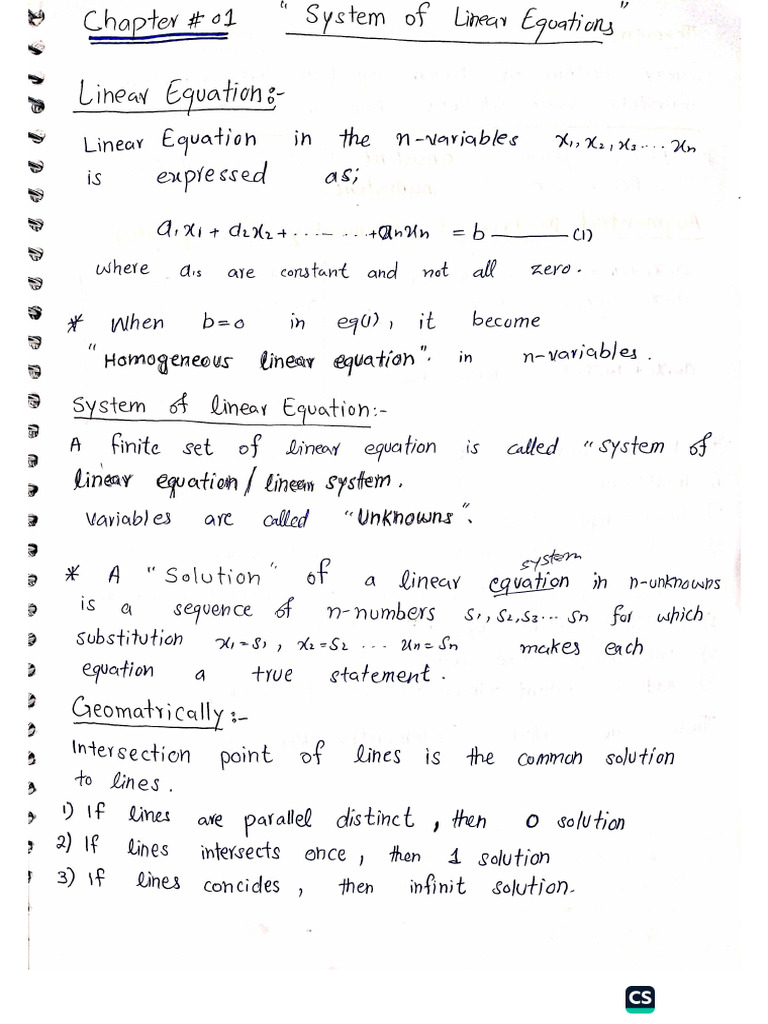 Chapter # 01 "System of Linear Equations"
Linear Equation:-
Linear Equation in the n-variables x1, x2, x3.... xn
is expressed as;
a1x1 + a2x2 + ...- ...+anxn = b ——— (1)
where a,s are constant and not all zero.
* When b=0 in eq(1), it become
"Homogeneous linear equation". in n-variables.
System of linear Equation:-
A finite set of linear equation is called "system of
linear equation/ linear system.
variables are called "Unknowns".
system
* A "Solution" of a linear equation in n-unknowns
is a sequence of n-numbers s1, s2, s3... sn for which
substitution x1=s1, x2=s2 ... xn=sn makes each
equation a true statement.
Geomatrically:-
Intersection point of lines is the common solution
to lines.
1) If lines are parallel distinct, then 0 solution
2) If lines intersects once, then 1 solution
3) If lines concides, then infinit solution.
CS